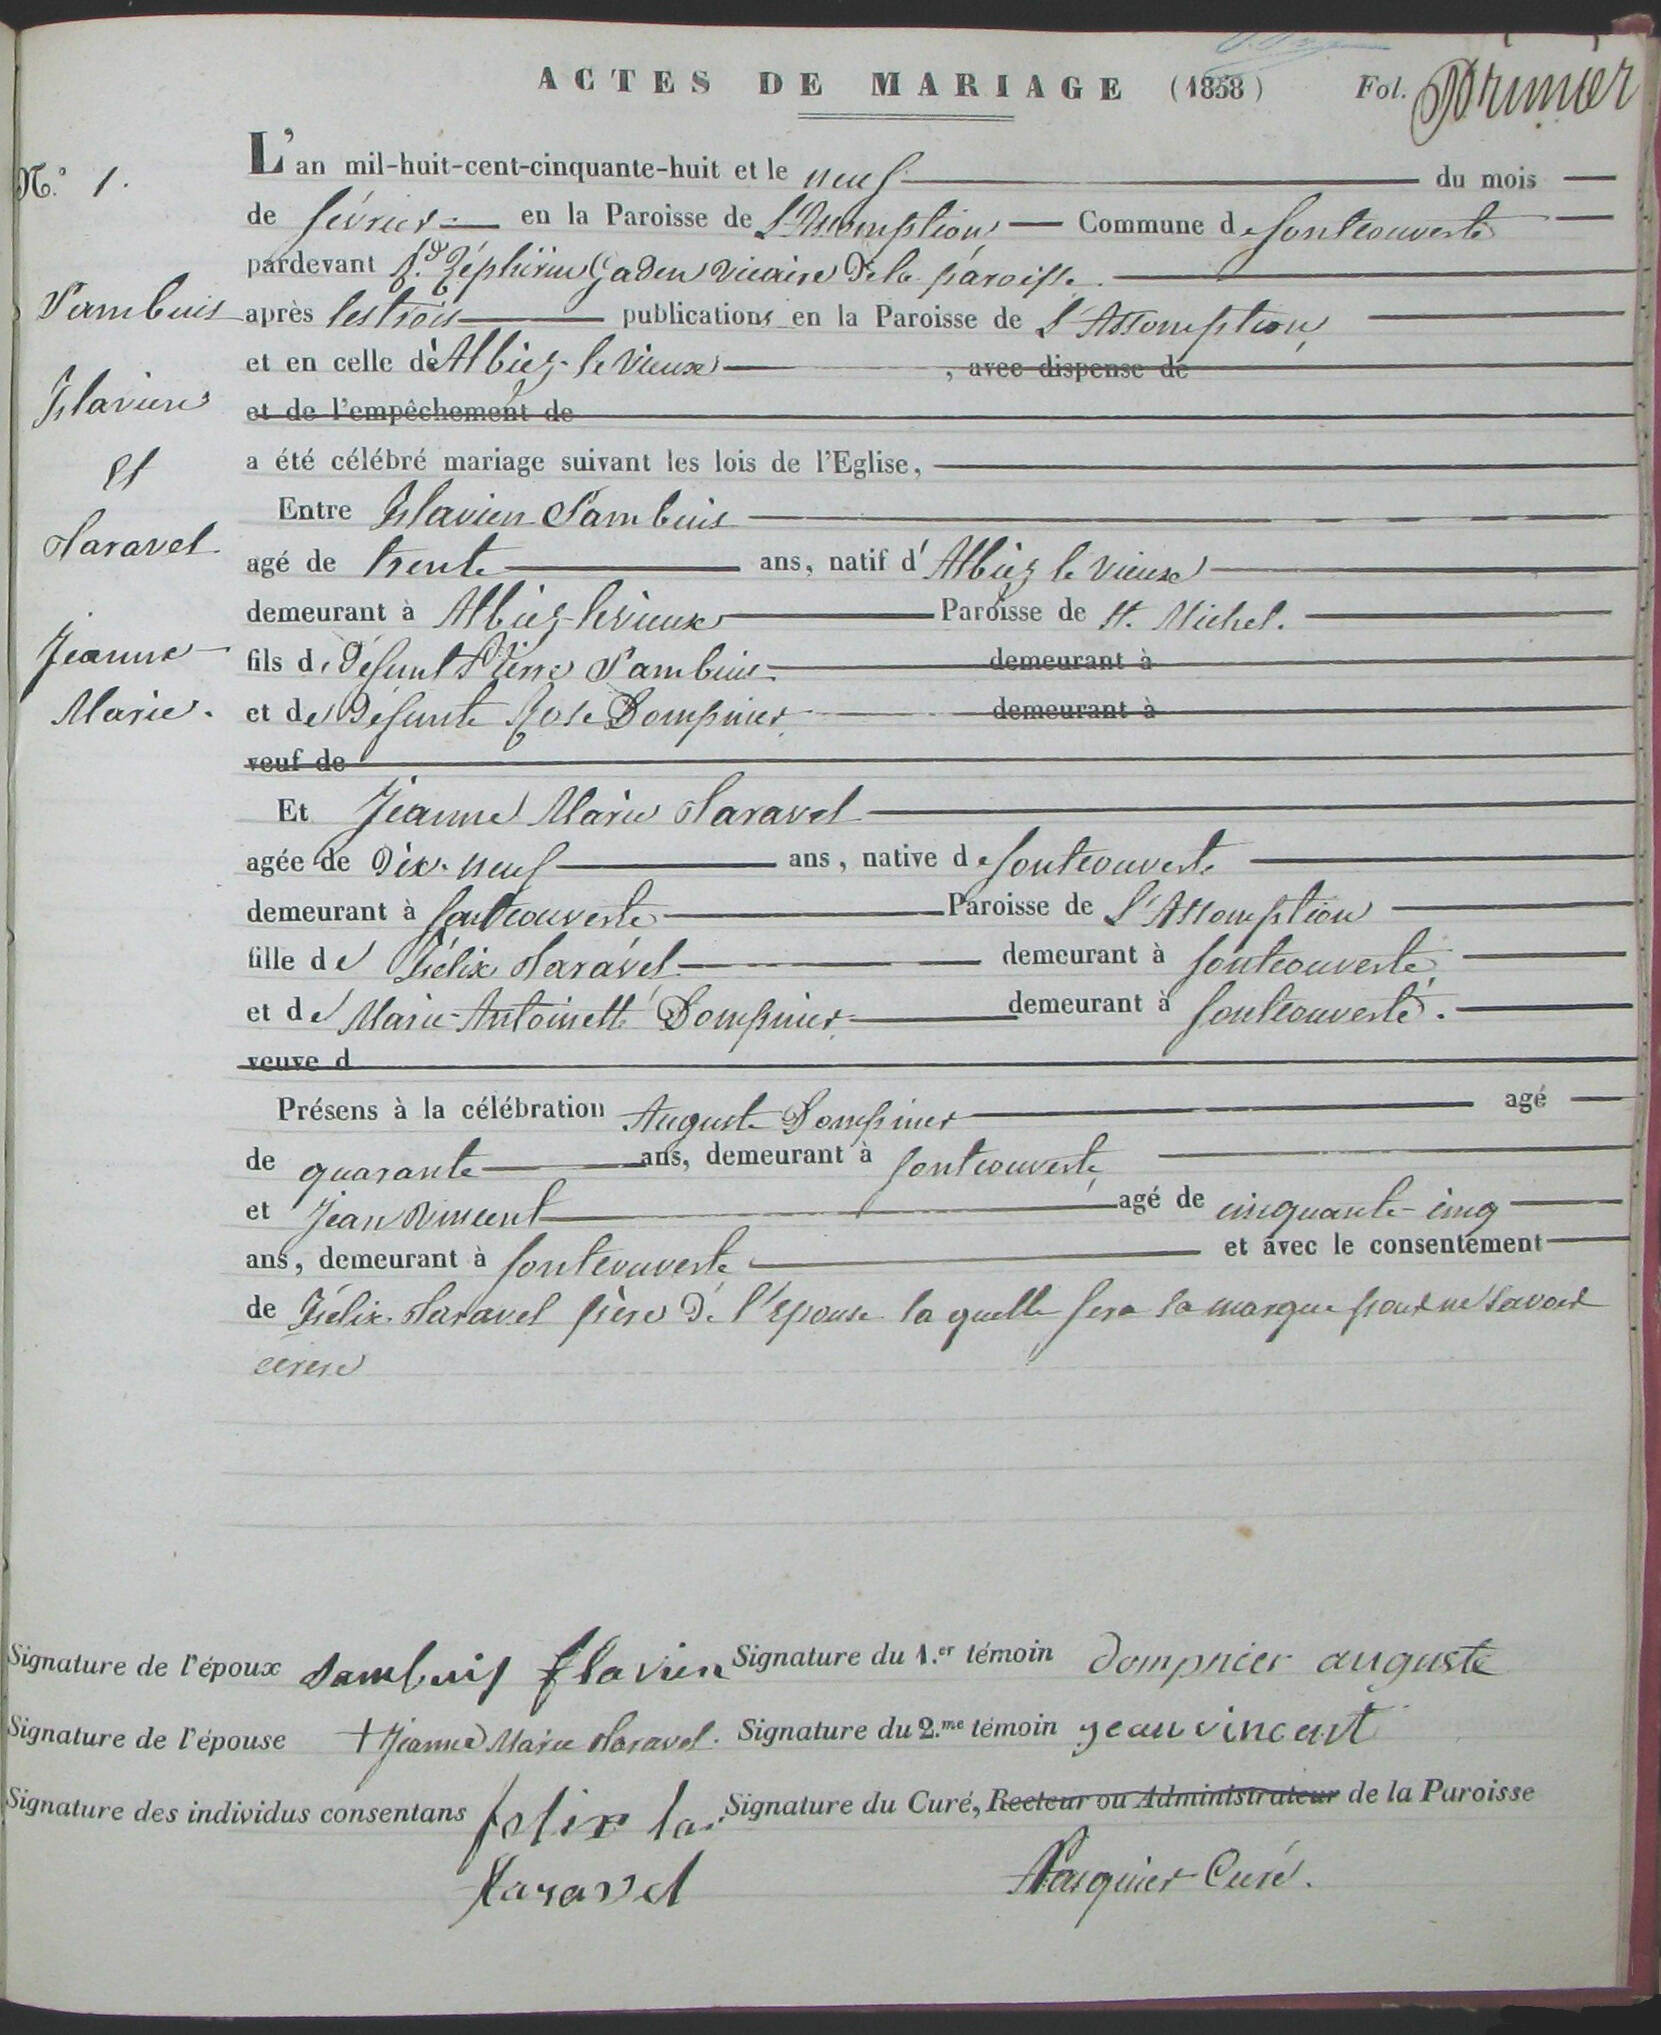 ACTES DE MARIAGE (1858) Fol. Primier
N.º 1.
L'an mil-huit-cent-cinquante-huit et le neuf du mois
de février en la Paroisse de L'Assomption Commune de fontcouverte
pardevant R.d Zéphirin Gaden vicaire de la paroisse.
Sambuis
après les trois publications en la Paroisse de L'Assomption,
et en celle de Albiez-le vieux, avec dispense de
Flavien
et de l'empêchement de
et
a été célébré mariage suivant les lois de l'Eglise,
Entre Flavien Sambuis
Taravel
agé de trente ans, natif d'Albiez le vieux
demeurant à Albiez-le vieux Paroisse de St. Michel.
Jeanne
fils de Défunt Pierre Sambuis demeurant à
Marie.
et de Défunte Rose Dompnier demeurant à
veuf de
Et Jeanne Marie Taravel
agée de Dix-neuf ans, native de fontcouverte
demeurant à fontcouverte Paroisse de L'Assomption
fille de Félix Taravel demeurant à fontcouverte
et de Marie-Antoinette Dompnier demeurant à fontcouverte.
veuve d
Présens à la célébration Auguste Dompnier agé
de quarante ans, demeurant à fontcouverte
et Jean Vincent agé de cinquante-cinq
ans, demeurant à fontcouverte et avec le consentement
de Félix Taravel père de l'Epouse la quelle fera sa marque pour ne savoir
écrire
Signature de l'époux Sambuis flavien Signature du 1.er témoin dompnier auguste
Signature de l'épouse + Jeanne Marie Taravel. Signature du 2.me témoin jean vincent
Signature des individus consentans felix ta. Signature du Curé, Recteur ou Administrateur de la Paroisse
taravel Pasquier Curé.